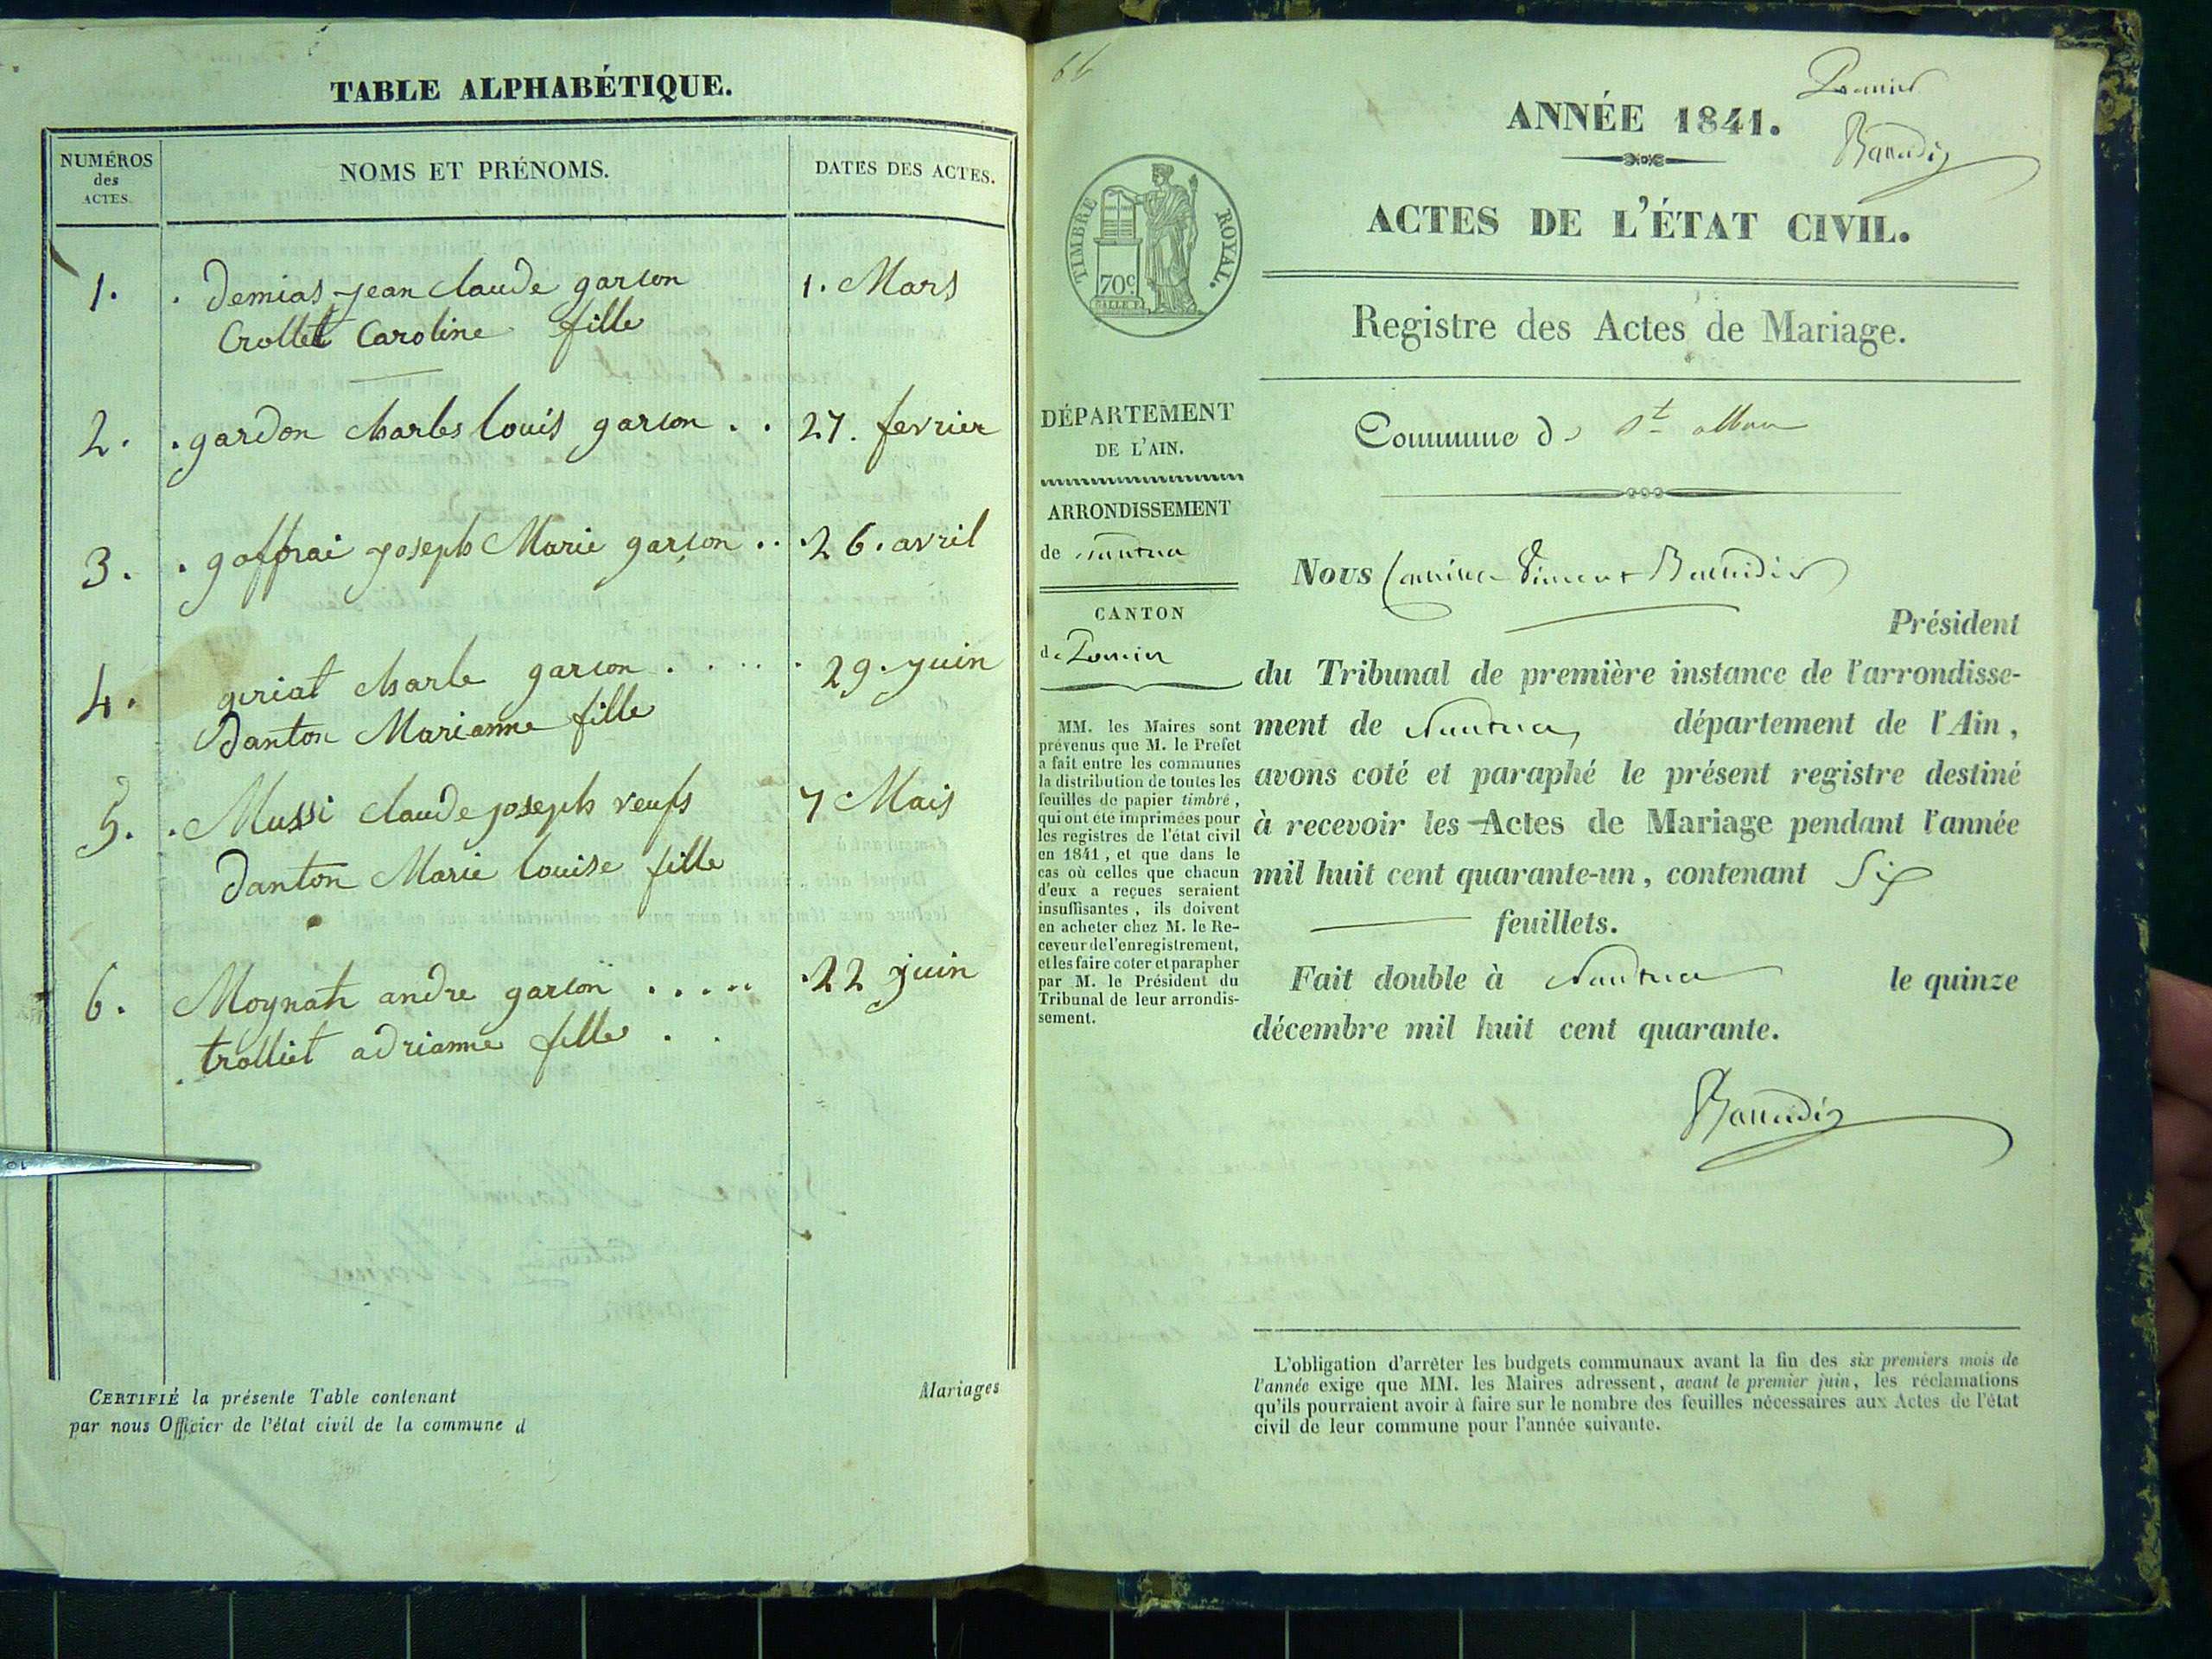 TABLE ALPHABÉTIQUE.
NUMÉROS
des
ACTES.
NOMS ET PRÉNOMS.
DATES DES ACTES.
1. Demias jean claude garçon 1. Mars
Crollet Caroline fille
2. gardon charles louis garçon . . 27. fevrier
3. goffrai joseph Marie garçon . . 26. avril
4. giriat charle garcon . . . . . 29. juin
Danton Marianne fille
5. Mussi claude joseph veufs 7 Mais
Danton Marie louise fille
6. Moynah andre garcon . . . . . 22 juin
trolliet adrianne fille . .
CERTIFIÉ la présente Table contenant
par nous Officier de l'état civil de la commune d
Mariages
66
ANNÉE 1841.
ACTES DE L'ÉTAT CIVIL.
TIMBRE ROYAL.
70c
Registre des Actes de Mariage.
DÉPARTEMENT
DE L'AIN.
ARRONDISSEMENT
de Nantua
CANTON
de
MM. les Maires sont
prévenus que M. le Préfet
a fait entre les communes
la distribution de toutes les
feuilles de papier timbré,
qui ont été imprimées pour
les registres de l'état civil
en 1841, et que dans le
cas où celles que chacun
d'eux a reçues seraient
insuffisantes, ils doivent
en acheter chez M. le Re-
ceveur de l'enregistrement,
et les faire coter et parapher
par M. le Président du
Tribunal de leur arrondis-
sement.
Commune de St alban
Nous
Président
du Tribunal de première instance de l'arrondisse-
ment de Nantua, département de l'Ain,
avons coté et paraphé le présent registre destiné
à recevoir les Actes de Mariage pendant l'année
mil huit cent quarante-un, contenant Six
feuillets.
Fait double à Nantua le quinze
décembre mil huit cent quarante.
L'obligation d'arrêter les budgets communaux avant la fin des six premiers mois de
l'année exige que MM. les Maires adressent, avant le premier juin, les réclamations
qu'ils pourraient avoir à faire sur le nombre des feuilles nécessaires aux Actes de l'état
civil de leur commune pour l'année suivante.